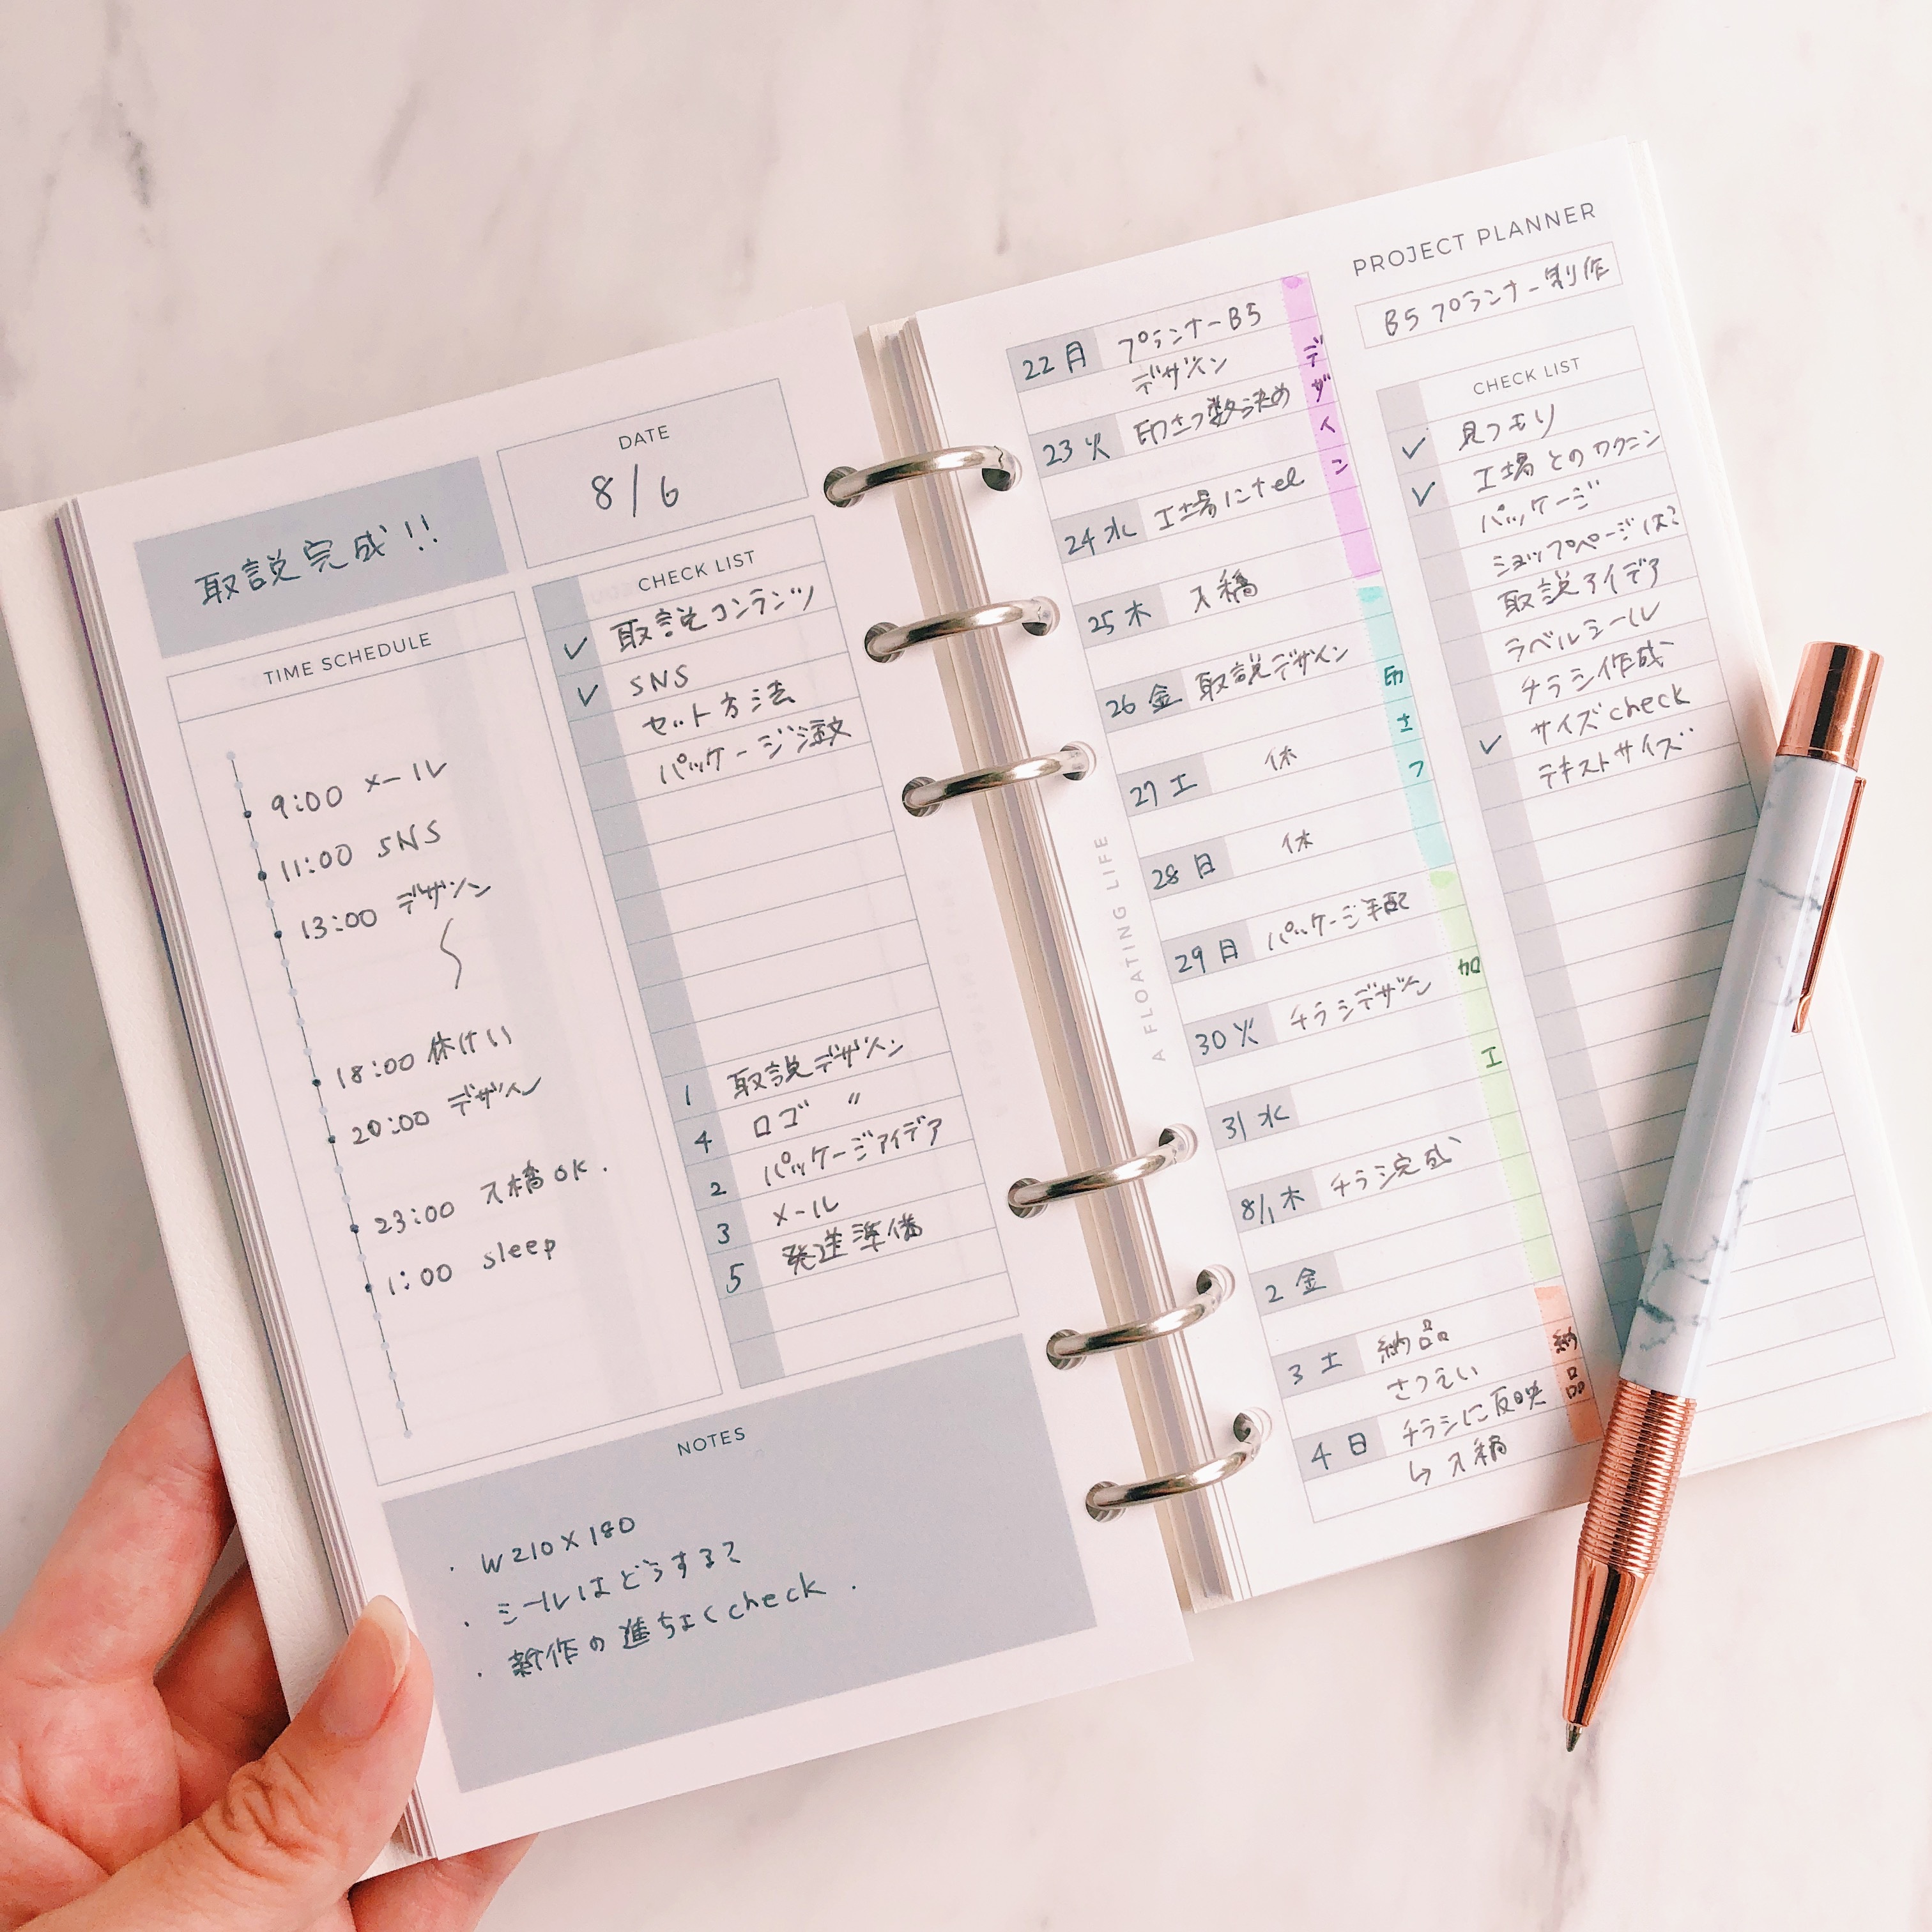 取説完成!!
DATE
8/6
TIME SCHEDULE
9:00 メール
11:00 SNS
13:00 デザイン
18:00 休けい
20:00 デザイン
23:00 入稿 OK.
1:00 sleep
CHECK LIST
✓ 取説コンテンツ
✓ SNS
セット方法
パッケージ注文
1 取説デザイン
4 ロゴ 〃
2 パッケージアイデア
3 メール
5 発送準備
NOTES
・W210×180
・シールはどうする?
・新作の進ちょくcheck.
A FLOATING LIFE
22 月 プランナーB5
デザイン
23 火 印さつ数決め
24 水 工場にtel
25 木 入稿
26 金 取説デザイン
27 土 休
28 日 休
29 月 パッケージ手配
30 火 チラシデザイン
31 水
8/1 木 チラシ完成
2 金
3 土 納品
さつえい
4 日 チラシに反映
↳ 入稿
デザイン
印さつ
加工
納品
PROJECT PLANNER
B5 プランナー制作
CHECK LIST
✓ 見つもり
✓ 工場とのカクニン
パッケージ
ショップページは?
取説アイデア
ラベルシール
チラシ作成
✓ サイズcheck
テキストサイズ